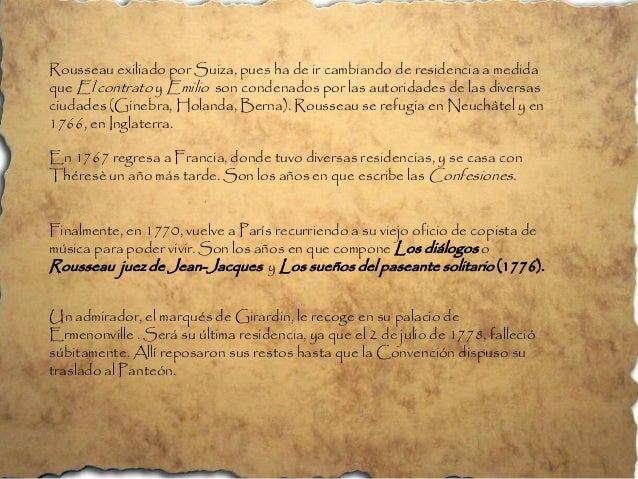 Rousseau exiliado por Suiza, pues ha de ir cambiando de residencia a medida
que El contrato y Emilio son condenados por las autoridades de las diversas
ciudades (Ginebra, Holanda, Berna). Rousseau se refugia en Neuchâtel y en
1766, en Inglaterra.
En 1767 regresa a Francia, donde tuvo diversas residencias, y se casa con
Théresè un año más tarde. Son los años en que escribe las Confesiones.
Finalmente, en 1770, vuelve a París recurriendo a su viejo oficio de copista de
música para poder vivir. Son los años en que compone Los diálogos o
Rousseau juez de Jean-Jacques y Los sueños del paseante solitario (1776).
Un admirador, el marqués de Girardin, le recoge en su palacio de
Ermenonville . Será su última residencia, ya que el 2 de julio de 1778, falleció
súbitamente. Allí reposaron sus restos hasta que la Convención dispuso su
traslado al Panteón.